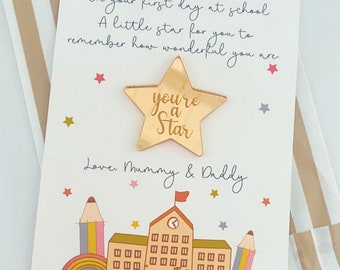 On your first day at school
A little star for you to
remember how wonderful you are
you're
a
Star
Love, Mummy & Daddy